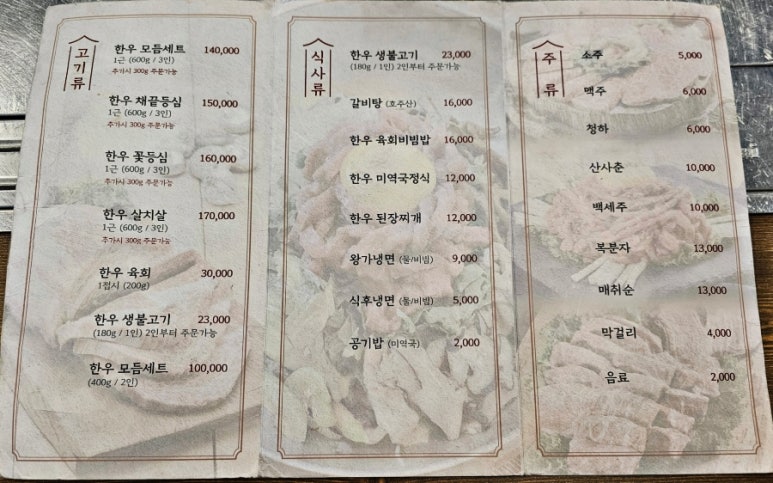 고기류
한우 모듬세트 140,000
1근 (600g / 3인)
추가시 300g 주문가능
한우 채끝등심 150,000
1근 (600g / 3인)
추가시 300g 주문가능
한우 꽃등심 160,000
1근 (600g / 3인)
추가시 300g 주문가능
한우 살치살 170,000
1근 (600g / 3인)
추가시 300g 주문가능
한우 육회 30,000
1접시 (200g)
한우 생불고기 23,000
(180g / 1인) 2인부터 주문가능
한우 모듬세트 100,000
(400g / 2인)
식사류
한우 생불고기 23,000
(180g / 1인) 2인부터 주문가능
갈비탕 (호주산) 16,000
한우 육회비빔밥 16,000
한우 미역국정식 12,000
한우 된장찌개 12,000
왕가냉면 (물/비빔) 9,000
식후냉면 (물/비빔) 5,000
공기밥 (미역국) 2,000
주류
소주 5,000
맥주 6,000
청하 6,000
산사춘 10,000
백세주 10,000
복분자 13,000
매취순 13,000
막걸리 4,000
음료 2,000